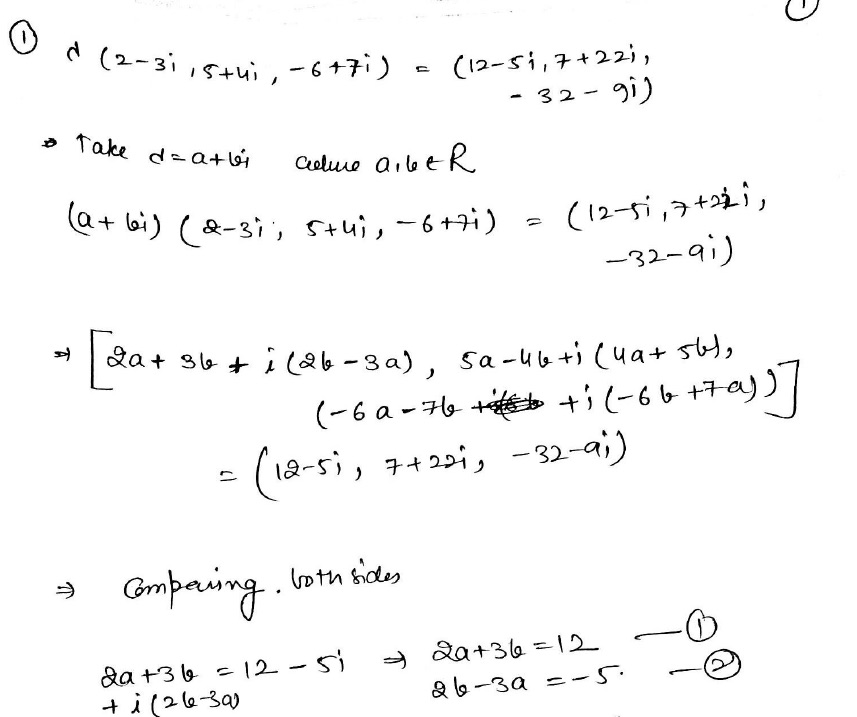 ①
① α (2-3i, 5+4i, -6+7i) = (12-5i, 7+22i,
-32-9i)
Take α=a+bi where a,b∈R
(a+bi) (2-3i, 5+4i, -6+7i) = (12-5i, 7+22i,
-32-9i)
⇒ [2a+3b+i(2b-3a), 5a-4b+i(4a+5b),
(-6a-7b +i(-6b+7a))]
= (12-5i, 7+22i, -32-9i)
⇒ Comparing. both sides
2a+3b = 12-5i ⇒ 2a+3b=12 —①
+i(2b-3a) 2b-3a=-5. —②